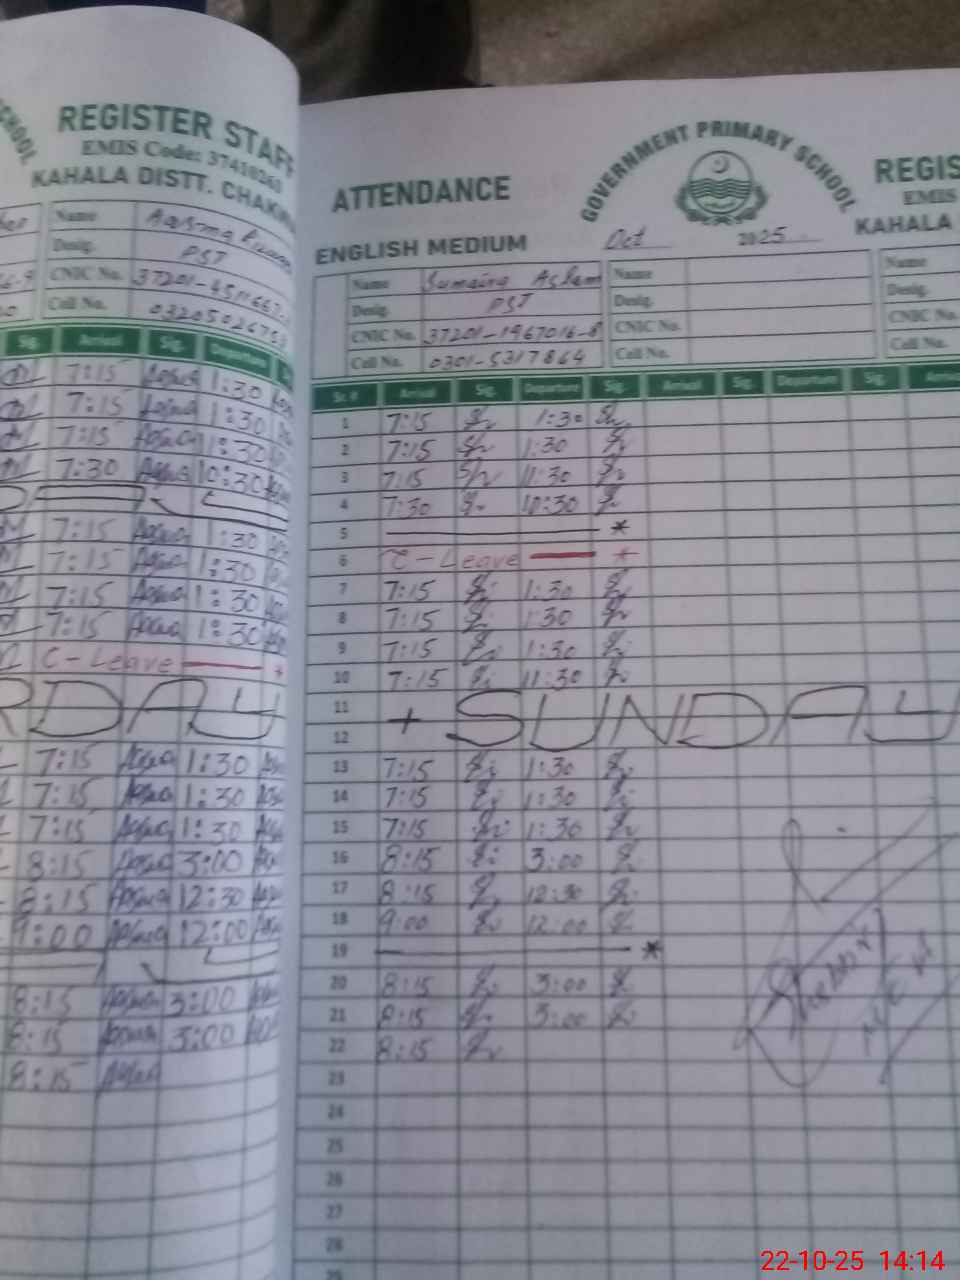 SCHOOL
REGISTER STAFF
EMIS Code: 37410260
KAHALA DISTT. CHAKW
Name
Desig. PST
CNIC No. 37201-4511667-
Cell No. 0320502675
Sig. Arrival Sig. Departure
7:15 Asma 1:30
7:15 Asma 1:30
7:15 Asma 1:30
7:30 Asma 10:30
7:15 Asma 1:30
7:15 Asma 1:30
7:15 Asma 1:30
7:15 Asma 1:30
C-Leave
RDAY
7:15 Asma 1:30
7:15 Asma 1:30
7:15 Asma 1:30
8:15 Asma 3:00
8:15 Asma 12:30
9:00 Asma 12:00
8:15 Asma 3:00
8:15 Asma 3:00
8:15 Asma
ATTENDANCE
GOVERNMENT PRIMARY SCHOOL
REGIS
EMIS
KAHALA
ENGLISH MEDIUM
Oct 2025
Name Sumaira Aslam Name Name
Desig. PST Desig. Desig.
CNIC No. 37201-1967016-8 CNIC No. CNIC No.
Cell No. 0301-5317864 Cell No. Cell No.
Sr. # Arrival Sig. Departure Sig. Arrival Sig. Departure Sig. Arriv
1 7:15 1:30
2 7:15 1:30
3 7:15 11:30
4 7:30 10:30
5 *
6 C-Leave +
7 7:15 1:30
8 7:15 1:30
9 7:15 1:30
10 7:15 11:30
11 + SUNDAY
12
13 7:15 1:30
14 7:15 1:30
15 7:15 1:30
16 8:15 3:00
17 8:15 12:30
18 9:00 12:00
19 *
20 8:15 3:00
21 8:15 3:00
22 8:15
23
24
25
26
27
28
22-10-25 14:14